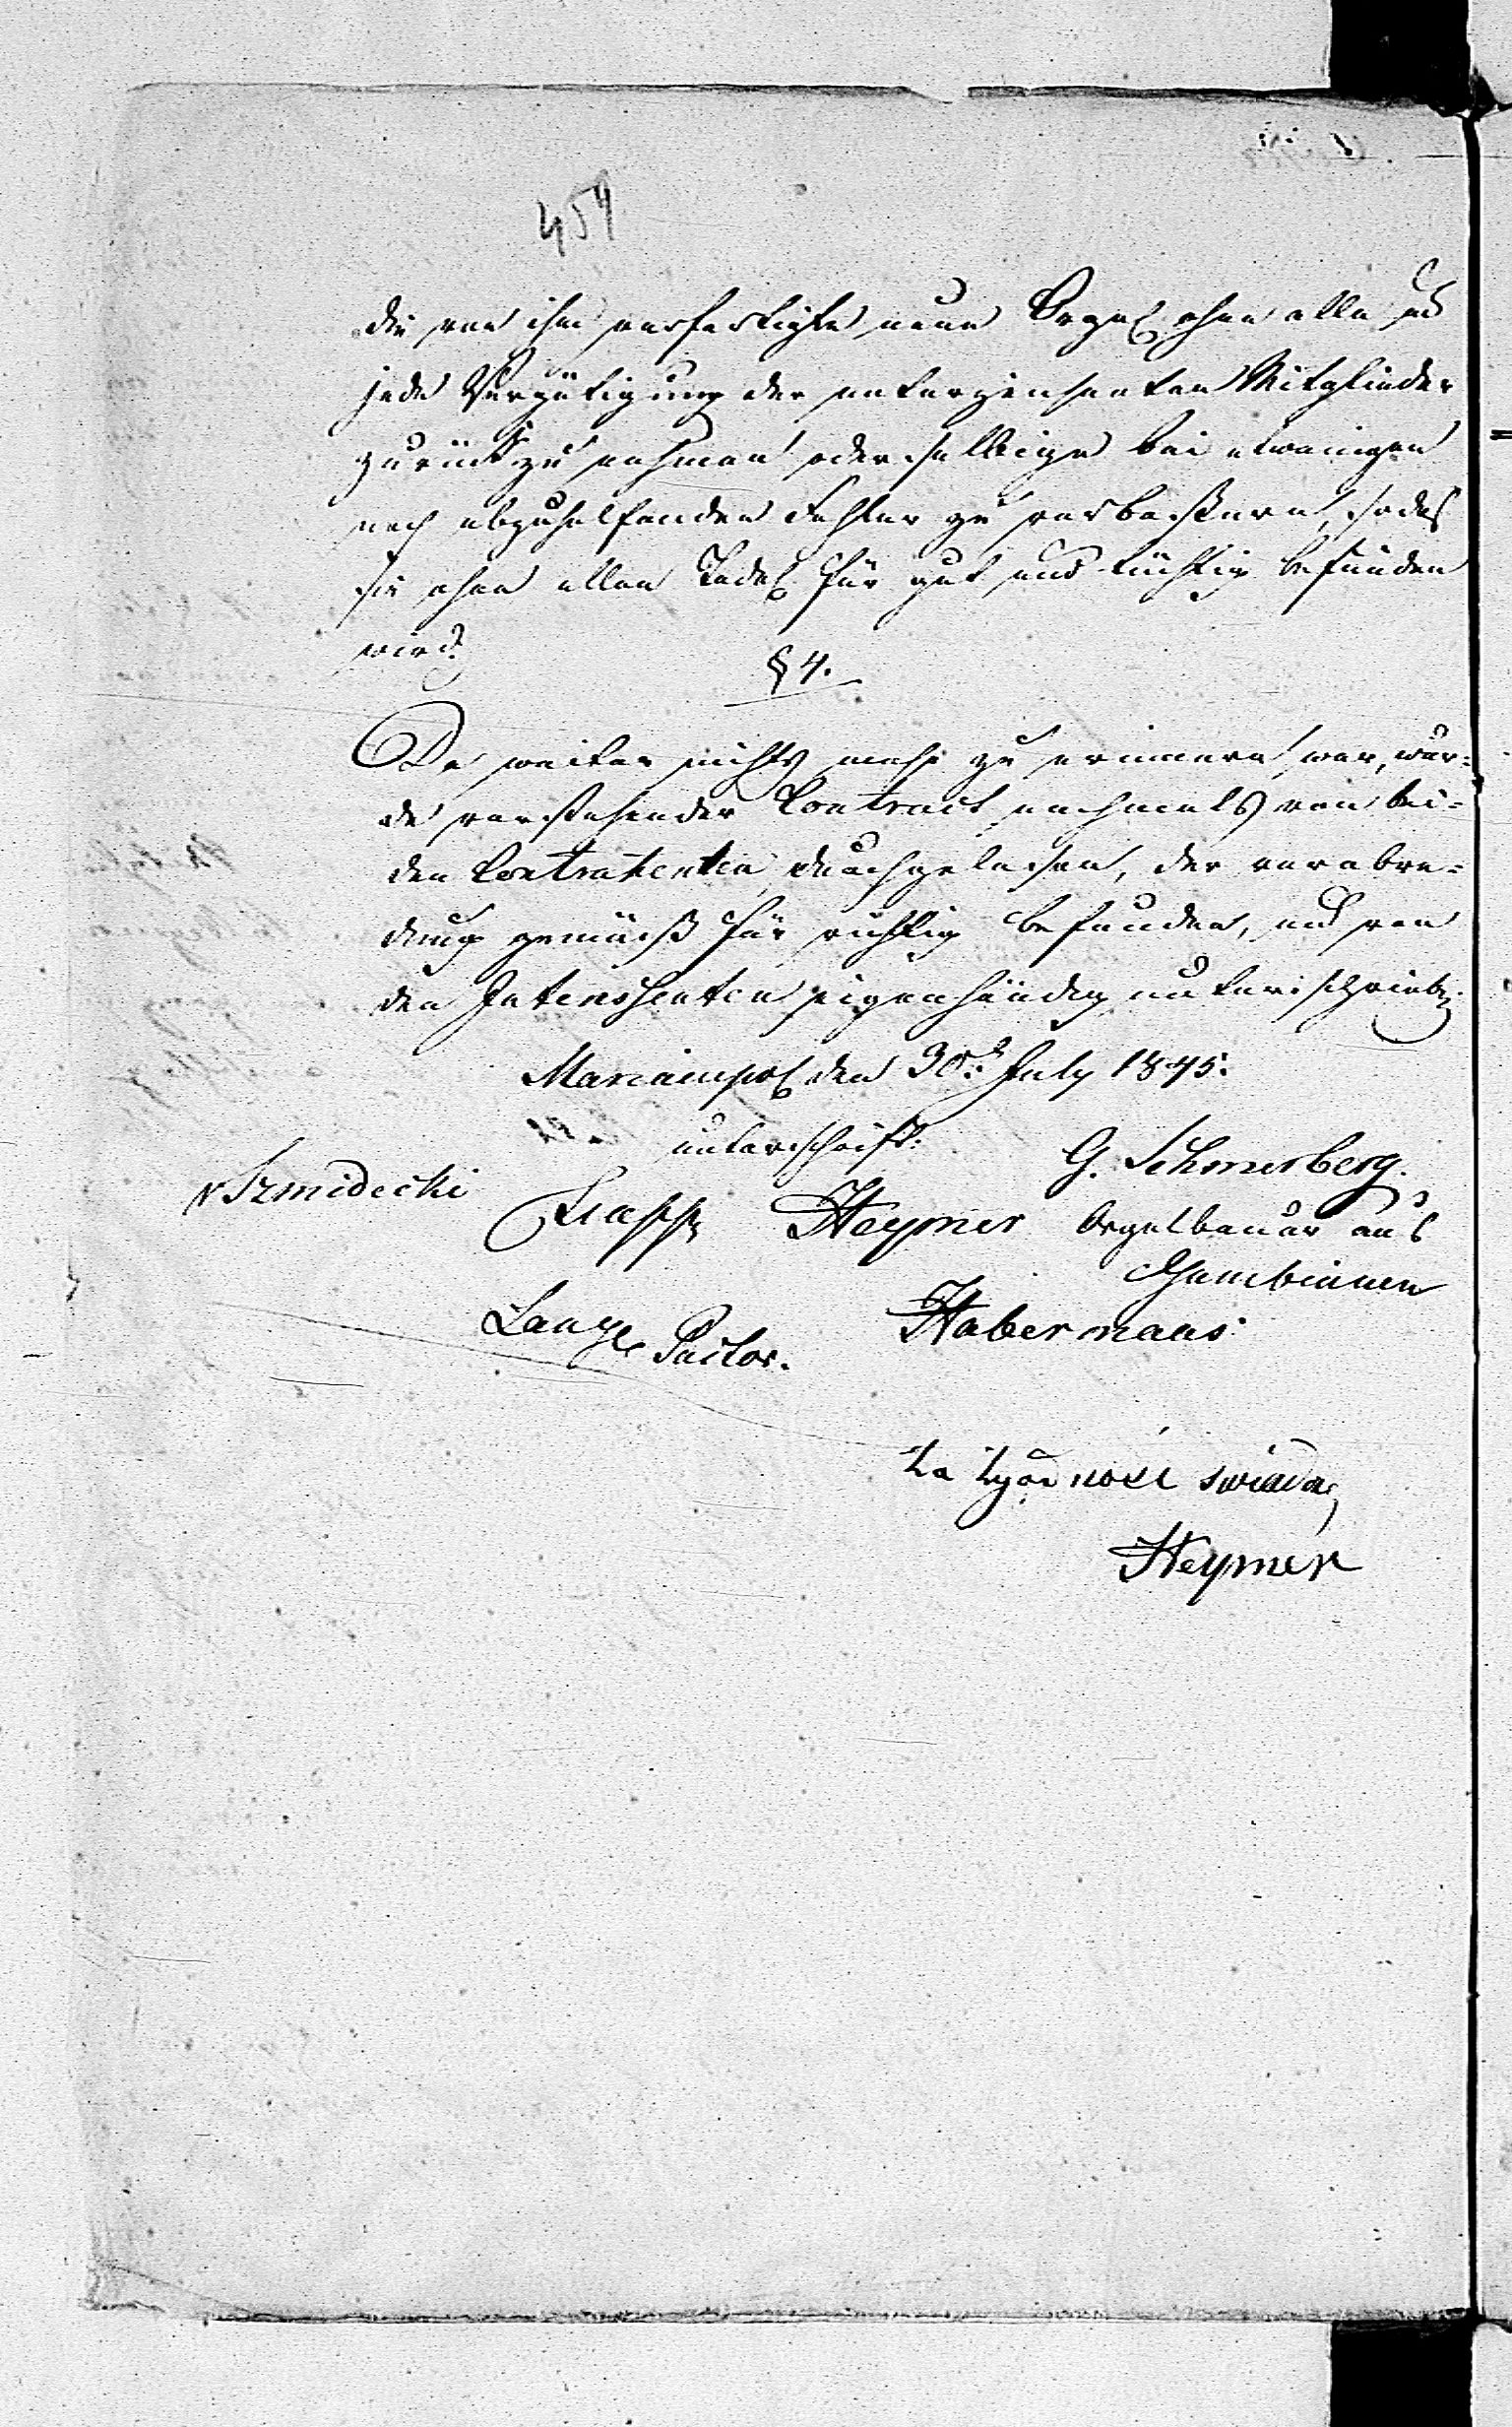 454
die von ihm verfertigte neue Orgel, ohne alle und
jede Vergütigung der unterzeichneten Mitglieder
zurück zu nehmen oder selbige bei etwanigen
noch abzuhelfenden Fehler zu verbeßern, so daß
sie ohne allen Tadel für gut und tüchtig befunden
wird.
§ 4.
Da weiter nichts mehr zu erinnern war, wur-
de vorstehender Contract nochmals von bei-
den Contrahenten durchgelesen, der verabre-
dung gemäß für richtig befunden, und von
den Interessenten eigenhändig unterschrieben.
Mariampol den 30t July 1845.
unterschrift.
G. Schmerberg.
Szmidecki
Heymer Orgelbauer aus
Gumbinnen
Lange Pastor. Habermaas
Za zgodność świadczy
Heymer